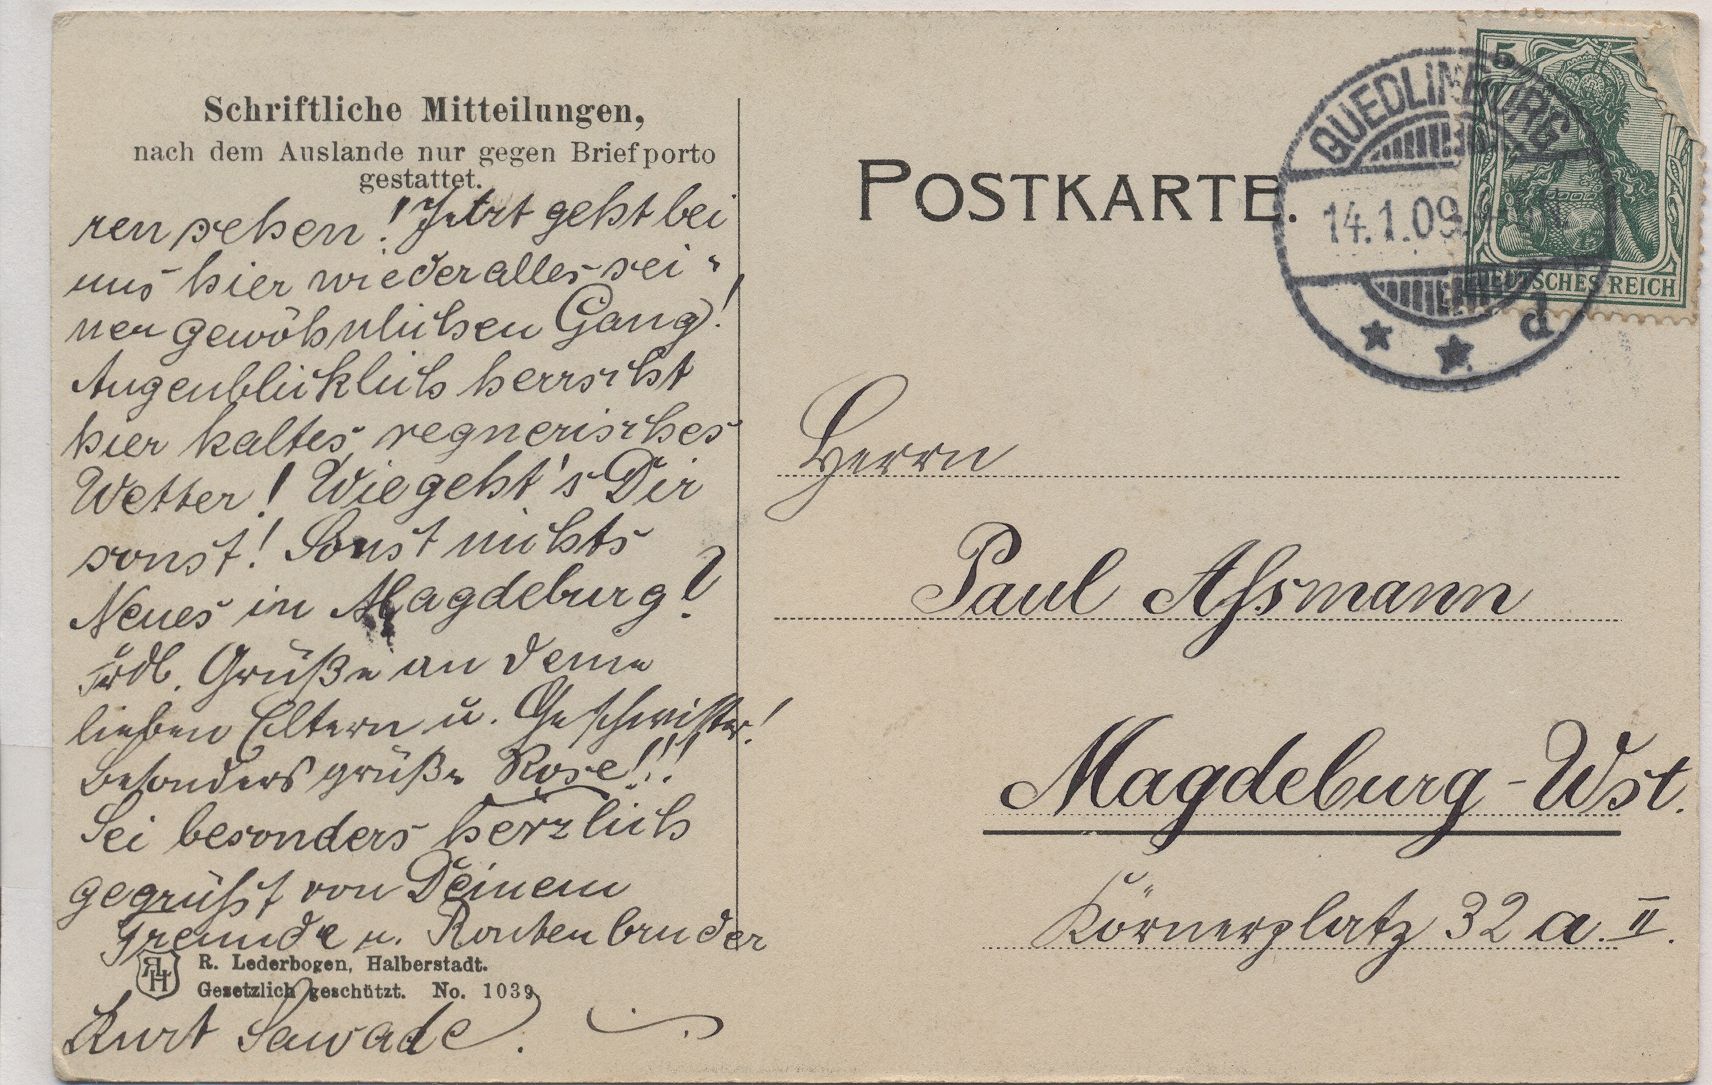 Schriftliche Mitteilungen,
nach dem Auslande nur gegen Briefporto
gestattet.
ren sehen! Jetzt geht bei
uns hier wieder alles sei-
nen gewöhnlichen Gang!
Augenblicklich herrscht
hier kaltes, regnerisches
Wetter! Wie geht's Dir
sonst! Sonst nichts
Neues in Magdeburg?
Frdl. Grüße an Deine
lieben Eltern u. Geschwister!
besonders grüße Rose!!!
Sei besonders herzlich
gegrüßt von Deinem
Freunde u. Rontenbruder
R. Lederbogen, Halberstadt.
Gesetzlich geschützt. No. 1039
Kurt Sawade.
RLH
POSTKARTE.
QUEDLINBURG
14.1.09.
d
5
DEUTSCHES REICH
Herrn
Paul Assmann
Magdeburg-Wst.
Körnerplatz 32 a. II.